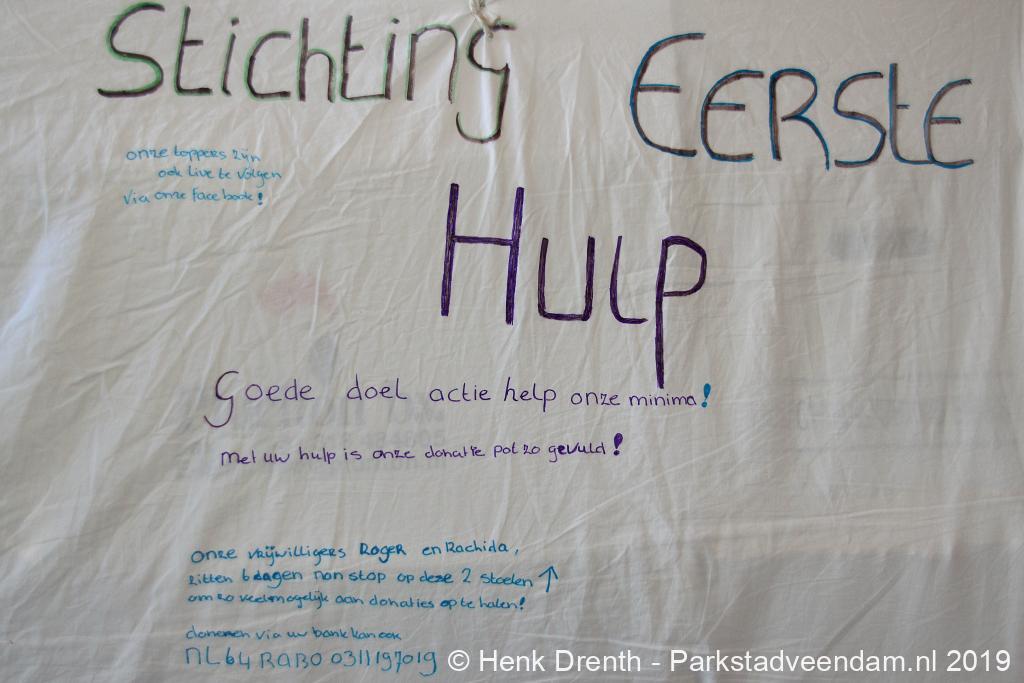 Stichting EERStE
HULP
onze toppers zijn
ook live te volgen
via onze face book!
Goede doel actie help onze minima!
Met uw hulp is onze donatie pot zo gevuld!
onze vrijwilligers ROGER en Rachida,
zitten 6 dagen non stop op deze 2 stoelen ↑
om zo veel mogelijk aan donaties op te halen!
doneren via uw bank kan ook
NL64 RABO 0311197019
© Henk Drenth - Parkstadveendam.nl 2019